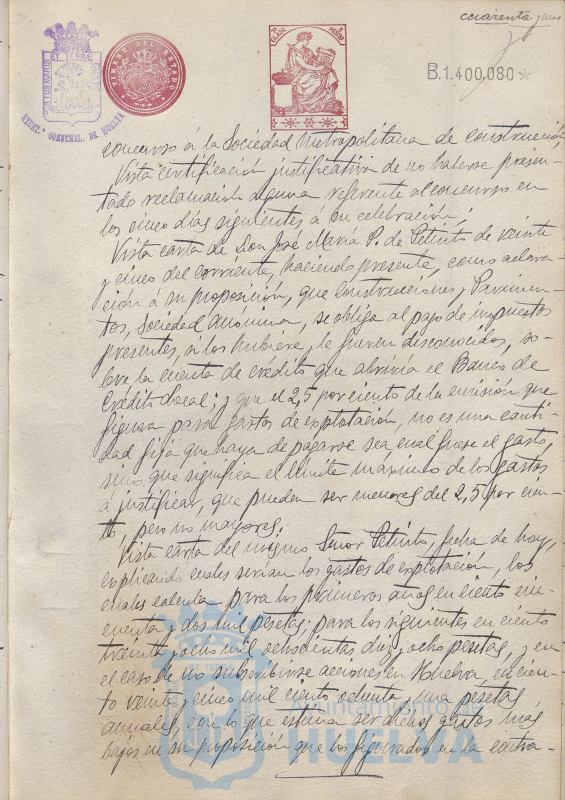 cuarenta y uno
TIMBRE DEL ESTADO
AYUNT.º CONSTNAL. DE HUELVA
B.1.400.080
concurso á la Sociedad Metropolitana de Construcción,
Vista certificación justificativa de no haberse presen-
tado reclamación alguna referente al concurso en
los cinco días siguientes á su celebración,
Vista carta de Don José María P. de Petinto de veinte
y cinco del corriente, haciendo presente, como aclara-
ción á su proposición, que Construcciones y Pavimen-
tos, Sociedad Anónima, se obliga al pago de impuestos
presentes, si los hubiere, y le fueren desconocidos, so-
bre la cuenta de crédito que abriría el Banco de
Crédito Local; y que el 2,5 por ciento de la emisión que
figura para gastos de explotación, no es una canti-
dad fija que haya de pagarse sea cual fuese el gasto,
sino que significa el límite máximo de los gastos
á justificar, que pueden ser menores del 2,5 por cien-
to, pero no mayores.
Vista carta del mismo Señor Petinto, fecha de hoy,
explicando cuales serían los gastos de explotación, los
cuales calcula para los primeros años en ciento cin-
cuenta y dos mil pesetas, para los siguientes en ciento
treinta y ocho mil ochocientas diez y ocho pesetas, y en
el caso de no subscribirse acciones en Huelva, en cien-
to veinte y cinco mil ciento ochenta y una pesetas
anuales, por lo que estima ser dichos gastos más
bajos en su proposición que los figurados en la contra-
Ayuntamiento de
HUELVA